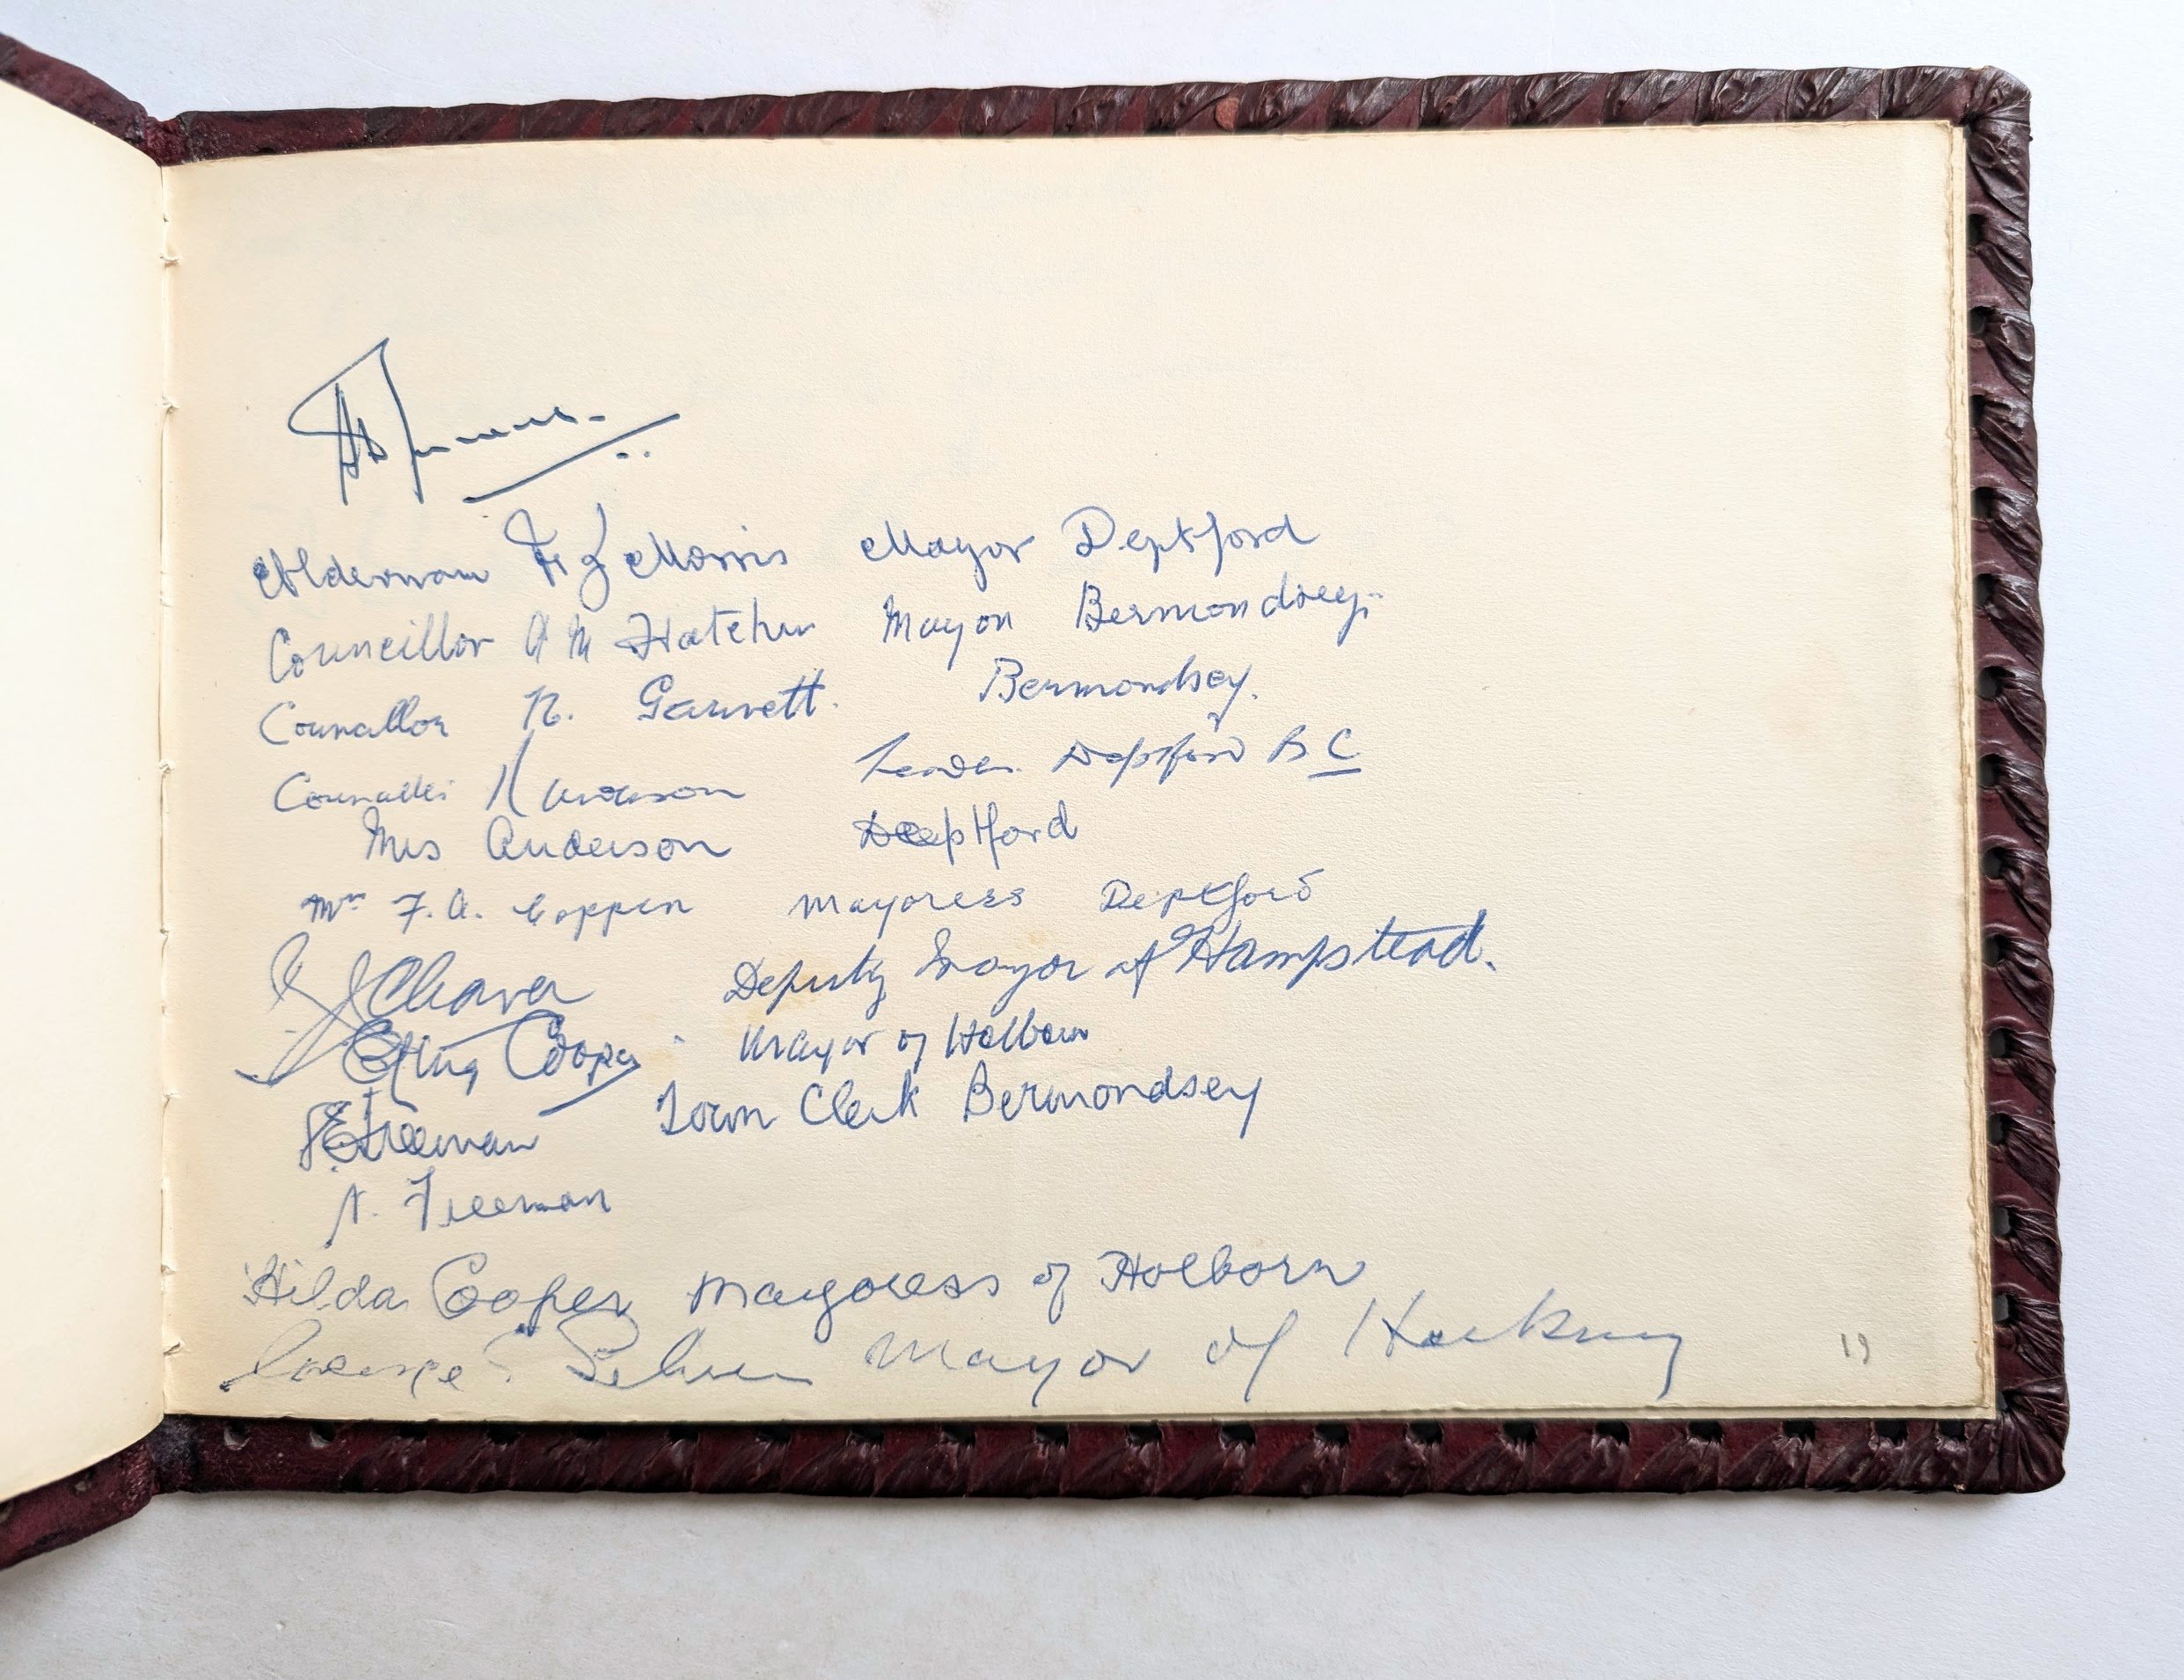 Alderman F J Morris Mayor Deptford
Councillor A M Hatcher Mayor Bermondsey
Councillor R. Garnett. Bermondsey.
Councillor Anderson Leader Deptford B C
Mrs Anderson Deptford
Mrs F. A. Coppen Mayoress Deptford
Deputy Mayor of Hampstead.
Cooper Mayor of Holborn
Freeman Town Clerk Bermondsey
Freeman
Hilda Cooper Mayoress of Holborn
Mayor of Hackney
19